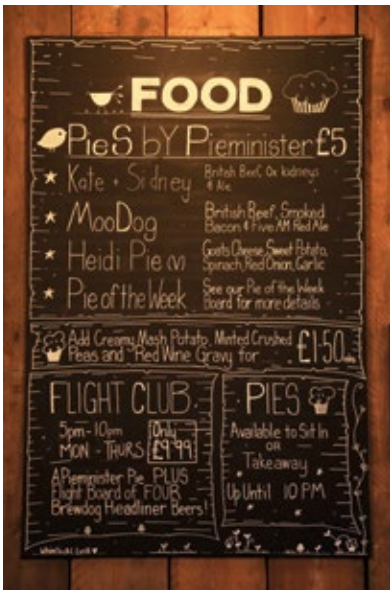 FOOD
PieS bY Pieminister £5
Kate + Sidney British Beef, Ox kidneys
& Ale
MooDog British Beef, Smoked
Bacon & Five AM Red Ale
Heidi Pie (v) Goats Cheese, Sweet Potato,
Spinach, Red Onion, Garlic
Pie of the Week See our Pie of the Week
Board for more details
Add Creamy Mash Potato, Minted Crushed
Peas and Red Wine Gravy for £1·50
FLIGHT CLUB
5pm-10pm Only
MON - THURS £9.99
A Pieminister Pie PLUS
Flight Board of FOUR
Brewdog Headliner Beers!
PIES
Available to Sit In
OR
Takeaway
Up Until 10 PM